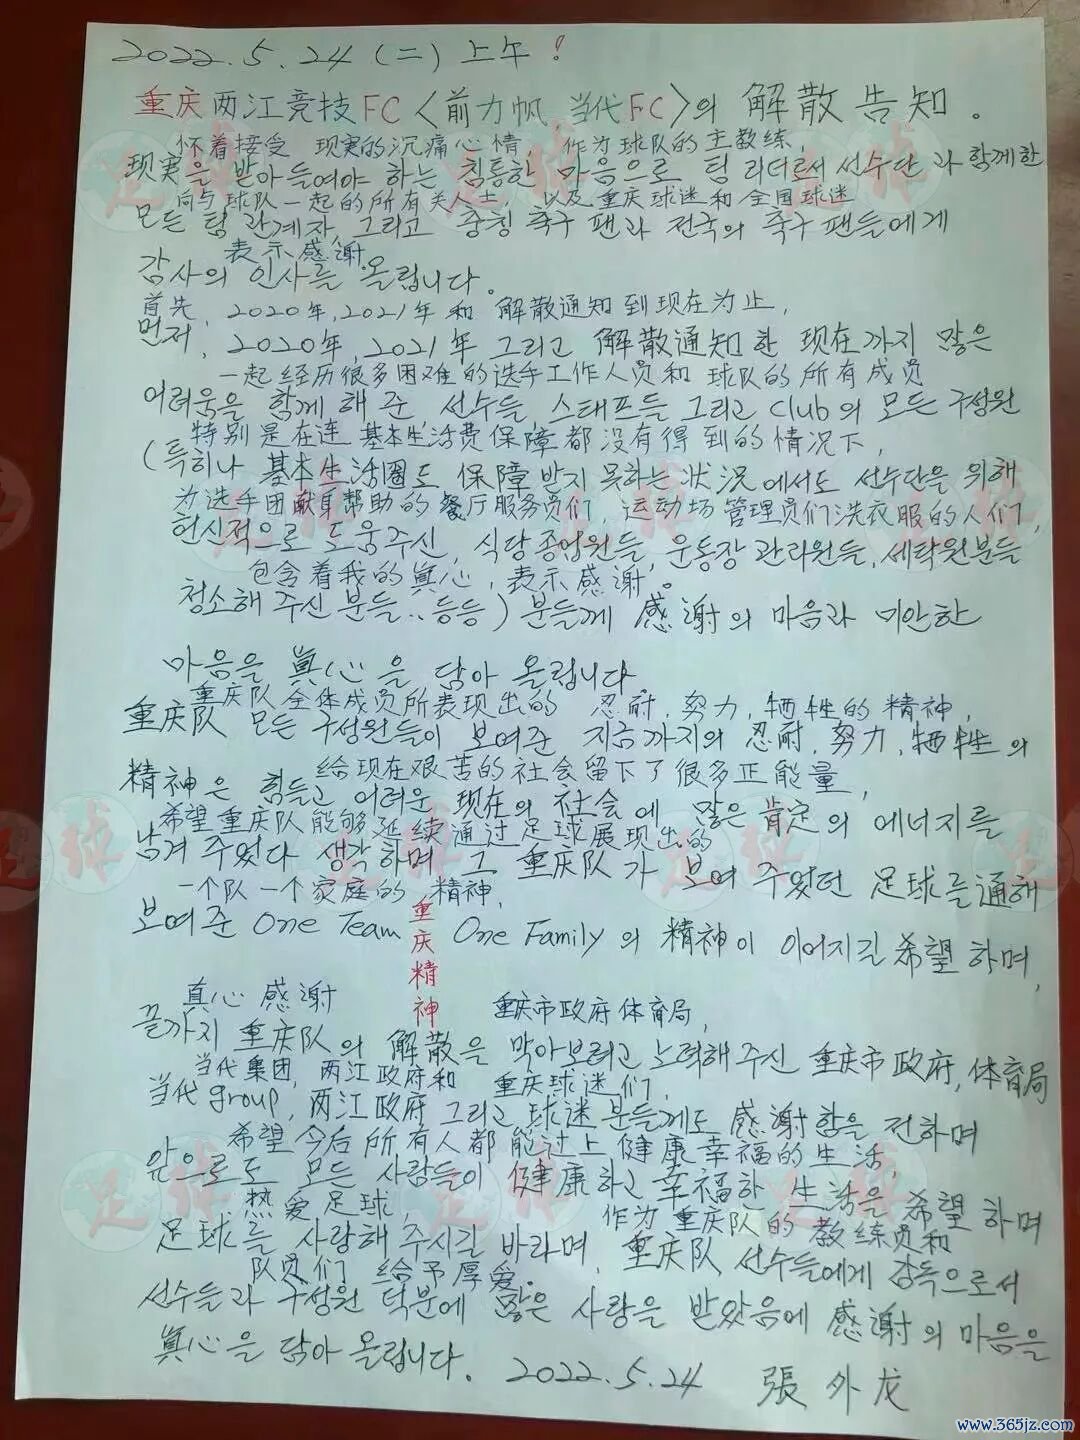 2022.5.24(二)上午!
重庆两江竞技FC〈前力帆 当代FC〉의 解散告知。
怀着接受 现实的沉痛心情, 作为球队的主教练,
现实을 받아들여야 하는 침통한 마음으로 팀 리더로서 선수단과 함께한
向与球队一起的所有关人士, 以及重庆球迷和全国球迷
모든 팀 관계자, 그리고 중칭 축구 팬과 전국의 축구 팬들에게
表示感谢
감사의 인사를 올립니다。
首先, 2020年,2021年 和 解散通知到现在为止,
먼저, 2020年,2021年 그리고 解散通知한 现在까지 많은
一起经历很多困难的选手工作人员和 球队的所有成员
어려움을 함께 해 준 선수들, 스태프들 그리고 Club의 모든 구성원
特别是在连 基本生活费保障都没有得到的情况下,
(특히나 基本生活圈도 保障받지 못하는 状况에서도 선수단을 위해
为选手团献身帮助的餐厅服务员们, 运动场管理员们洗衣服的人们,
헌신적으로 도움주신, 식당종업원들, 운동장관리원들, 세탁원분들
包含着我的真心, 表示感谢。
청소해 주신 분들..등등) 분들께 感谢의 마음과 미안한
마음을 真心을 담아 올립니다.
重庆队全体成员所表现出的 忍耐,努力,牺牲的精神,
重庆队 모든 구성원들이 보여준 지금까지의 忍耐,努力,牺牲의
给现在艰苦的社会留下了很多正能量,
精神은 힘들고 어려운 现在의 社会에 많은 肯定의 에너지를
希望重庆队能够延续通过足球展现出的
남겨 주었다 생각하며 그 重庆队가 보여 주었던 足球를 通해
一个队一个家庭的 精神,
보여준 One Team One Family의 精神이 이어지길 希望하며,
重庆精神
真心 感谢 重庆市政府体育局,
끝까지 重庆队의 解散을 막아보려고 노력해주신 重庆市政府,体育局
当代集团, 两江政府和 重庆球迷们,
当代group, 两江政府 그리고 球迷 분들께도 感谢함을 전하며
希望今后所有人都能过上健康幸福的生活,
앞으로도 모든 사람들이 健康하고 幸福한 生活을 希望하며
热爱足球, 作为重庆队的教练员和
足球를 사랑해 주시길 바라며, 重庆队 선수들에게 감독으로서
队员们 给予厚爱。
선수들과 구성원 덕분에 많은 사랑을 받았음에 感谢의 마음을
真心을 담아 올립니다. 2022.5.24 張外龙
www.365jz.com